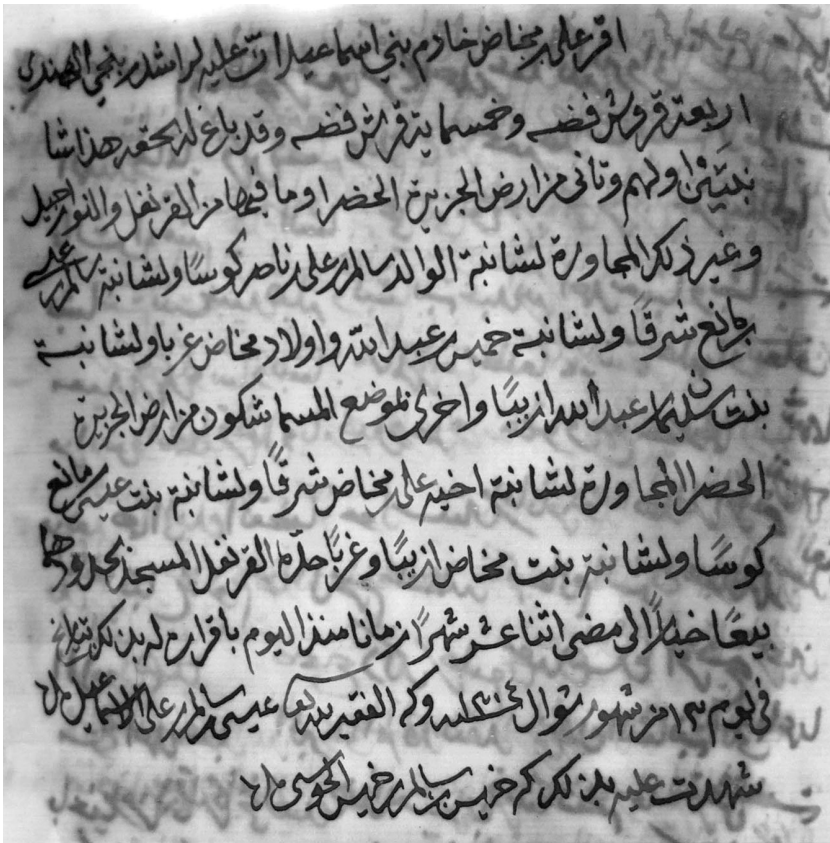 اقر علي بن مخاض خادم بني اسماعيل ان عليه لراشد بن بنجي الهندي
اربعة قروش فضه وخمسماية قرش فضه وقد باغ له بحقه هذا شا
نبتين اولهم وتاني من ارض الجزيرة الخضرا وما فيها من القرنفل والنورجيل
وغير ذلك المجاورة لشانبة الوالد سالم بن علي بن ناصر كوسًا ولشانبة سالم بن علي
بن مانع شرقًا ولشانبة خميس بن عبدالله واولاد مخاض غربا ولشانبة
بنت سليمان بن عبدالله ازيبًا واخرى بموضع المسما شكون من ارض الجزيرة
الخضرا المجاورة لشانبة اخيه علي مخاض شرقًا ولشانبة بنت عيسى بن مانع
كوسًا ولشانبة بنت مخاض ازيبًا وغربًا حدّه القرنفل المسجد بحدودها
بيعًا خيارًا الى مضى اثنا عشر شهرًا زمانا منذ اليوم باقراره له بذلك
في يوم ١٣ من شهور شوال سنة وكتبه الفقير لله عيسى بن سالم بن علي الاسماعيلي بيده
شهدت عليه بذلك وكتبه خميس بن سالم بن خميس الخوسي بيده